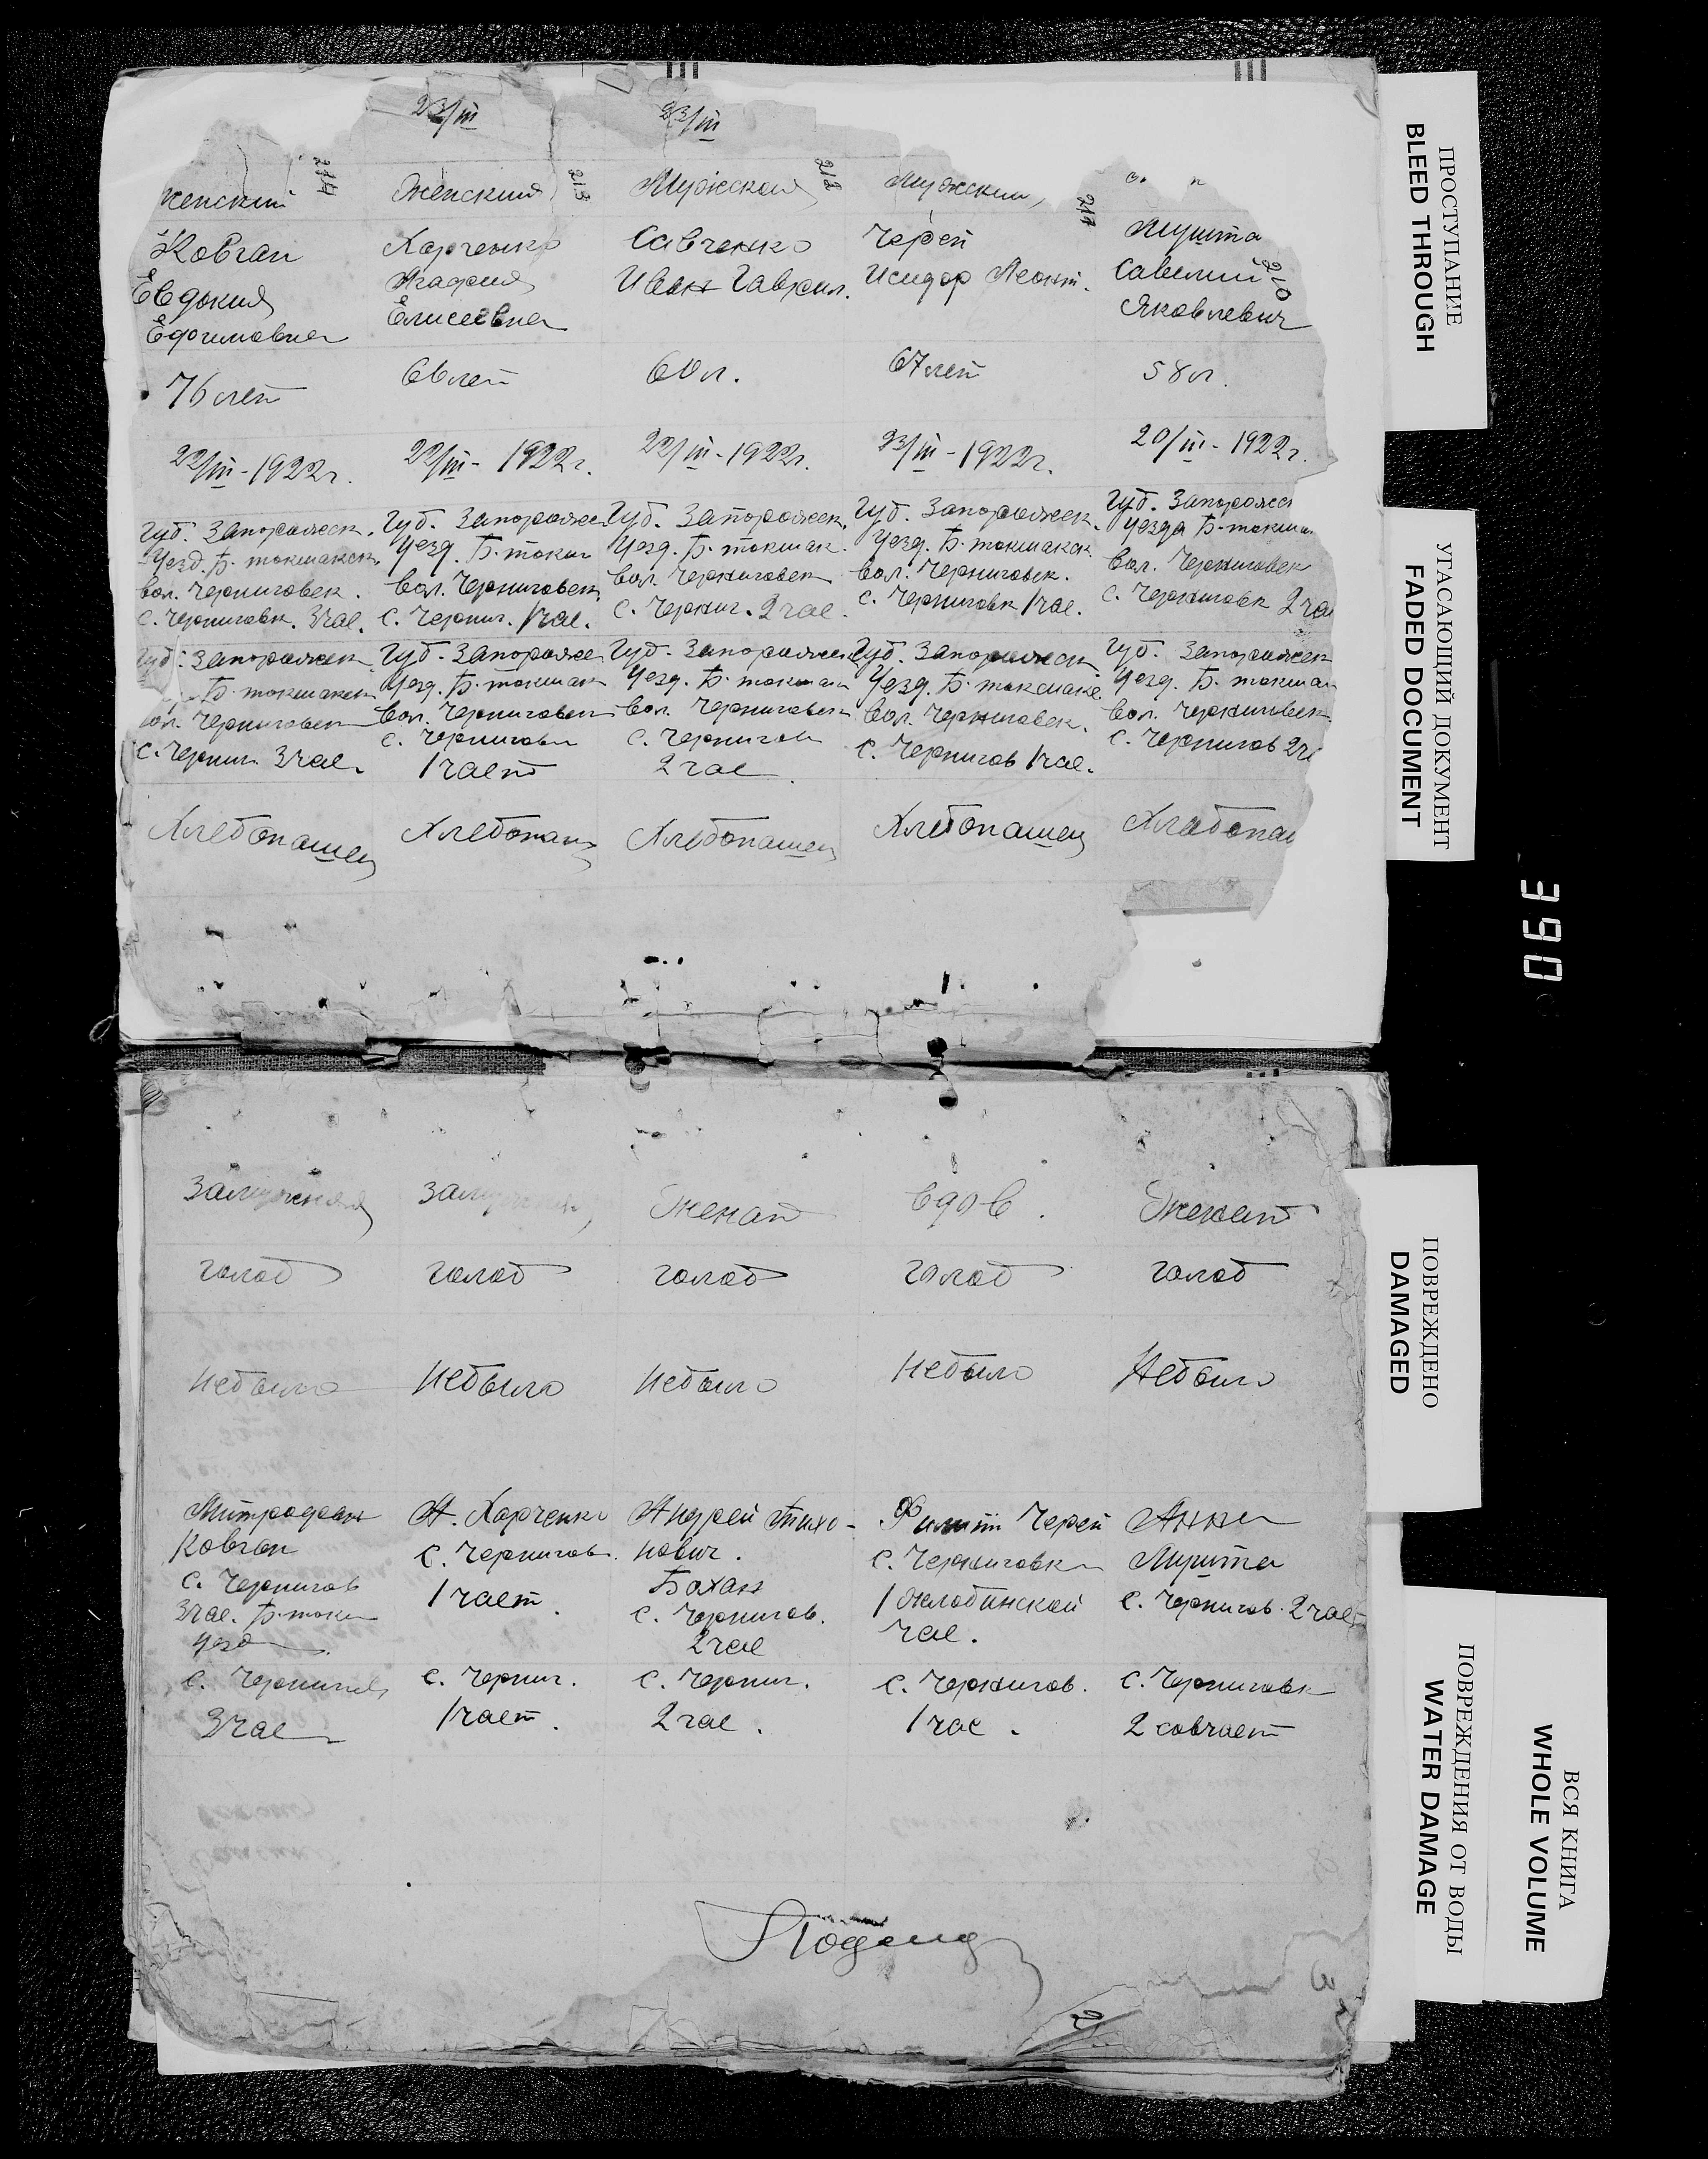 23/III
23/III
214
213
212
211
210
женский
Женский
Мужской
Мужский
Ковган
Евдокия
Ефимовна
Харченко
Агафия
Елисеевна
Савченко
Иван Гаврил.
Черей
Исидор Леонт.
Мушта
Савелий
Яковлевич
76 лет
66 лет
60 л.
67 лет
58 л.
22/III-1922г.
22/III-1922г.
22/III-1922г.
23/III-1922г.
20/III-1922г.
Губ. Запорожск.
Уезд. Б. токмакск.
Вол. Черниговск.
С. Черниговк. 3 час.
Губ. Запорожс
Уезд. Б. токм
Вол. Черниговск.
С. Черниг. 1 час.
Губ. Запорожск.
Уезд. Б. токмак.
Вол. Черниговск
С. Черниг. 2 час.
Губ. Запорожск.
Уезд. Б. токмакск.
Вол. Черниговск.
С. Черниговк 1 час.
Губ. Запорожс
Уезда Б-токма
Вол. Черниговск
С. Черниговк 2 час
Губ. Запорожск
Б. токмакск
вол. Черниговск
С. Черниг. 3 час.
Губ. Запороже
Уезд. Б. токмак
Вол. Черниговск
С. Чернигов
1 част
Губ. Запорожск
Уезд. Б. токмак
Вол. Черниговск
С. Чернигов
2 час
Губ. Запорожск
Уезд. Б. токмакс.
Вол. Черниговск.
С. Чернигов 1 час.
Губ. Запорожск
Уезд. Б. токмак
Вол. Черниговск.
С. Чернигов 2 ч
Хлебопашец
Хлебопаш
Хлебопашец
Хлебопашец
Хлебопаш
Замужняя
Замужняя
Женат
Вдов.
Женат
голод
голод
голод
голод
голод
Небыло
Небыло
Небыло
Небыло
Небыло
Митрофан
Ковган
С. Чернигов
3 час. Б. токм
уезд
А. Харченко
С. Чернигов.
1 част.
Андрей Тихо-
нович.
Бахан
С. Чернигов.
2 час
Филип Черей
С. Черниговк
1 Жлобинской
час.
Анна
Мушта
С. Чернигов. 2 част
С. Чернигов
3 час
С. Черниг.
1 част.
С. Черниг.
2 час.
С. Чернигов.
1 час.
С. Черниговк
2 совчаст
2
ПРОСТУПАНИЕ
BLEED THROUGH
УГАСАЮЩИЙ ДОКУМЕНТ
FADED DOCUMENT
390
ПОВРЕЖДЕНО
DAMAGED
ПОВРЕЖДЕНИЯ ОТ ВОДЫ
WATER DAMAGE
ВСЯ КНИГА
WHOLE VOLUME